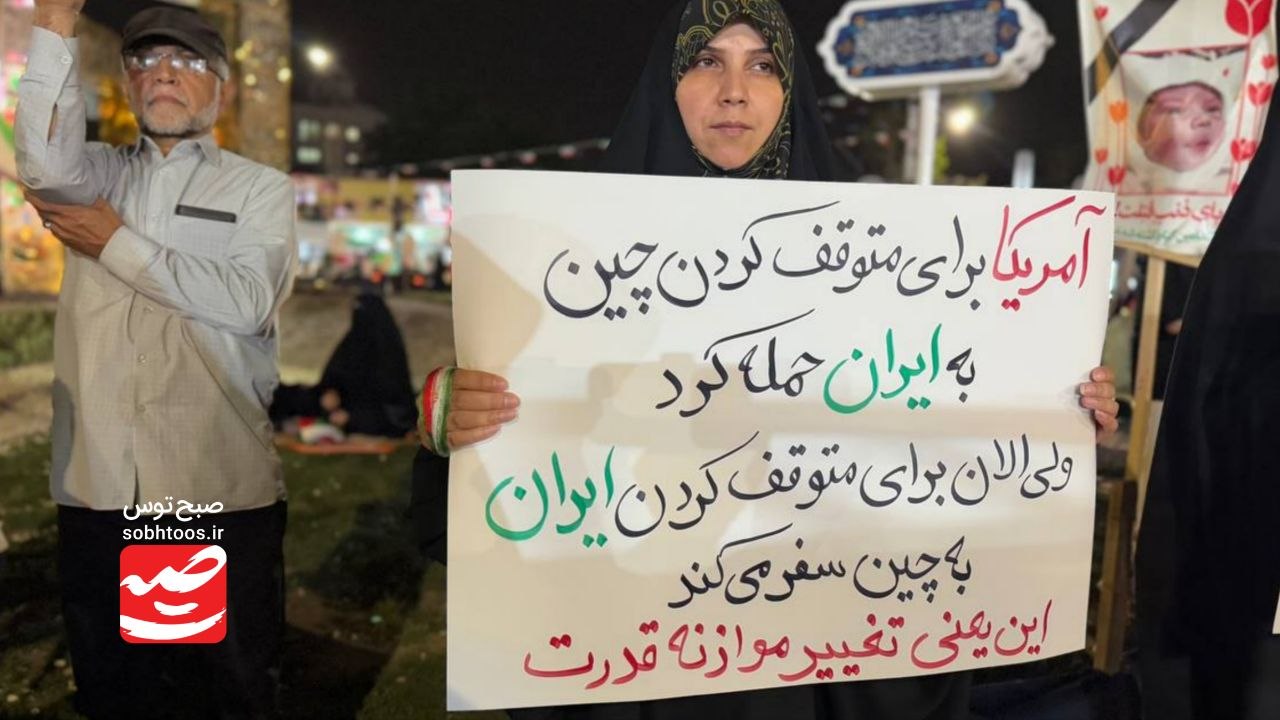 آمریکا برای متوقف کردن چین
به ایران حمله کرد
ولی الان برای متوقف کردن ایران
به چین سفر می‌کند
این یعنی تغییر موازنه قدرت
صبح توس
sobhtoos.ir